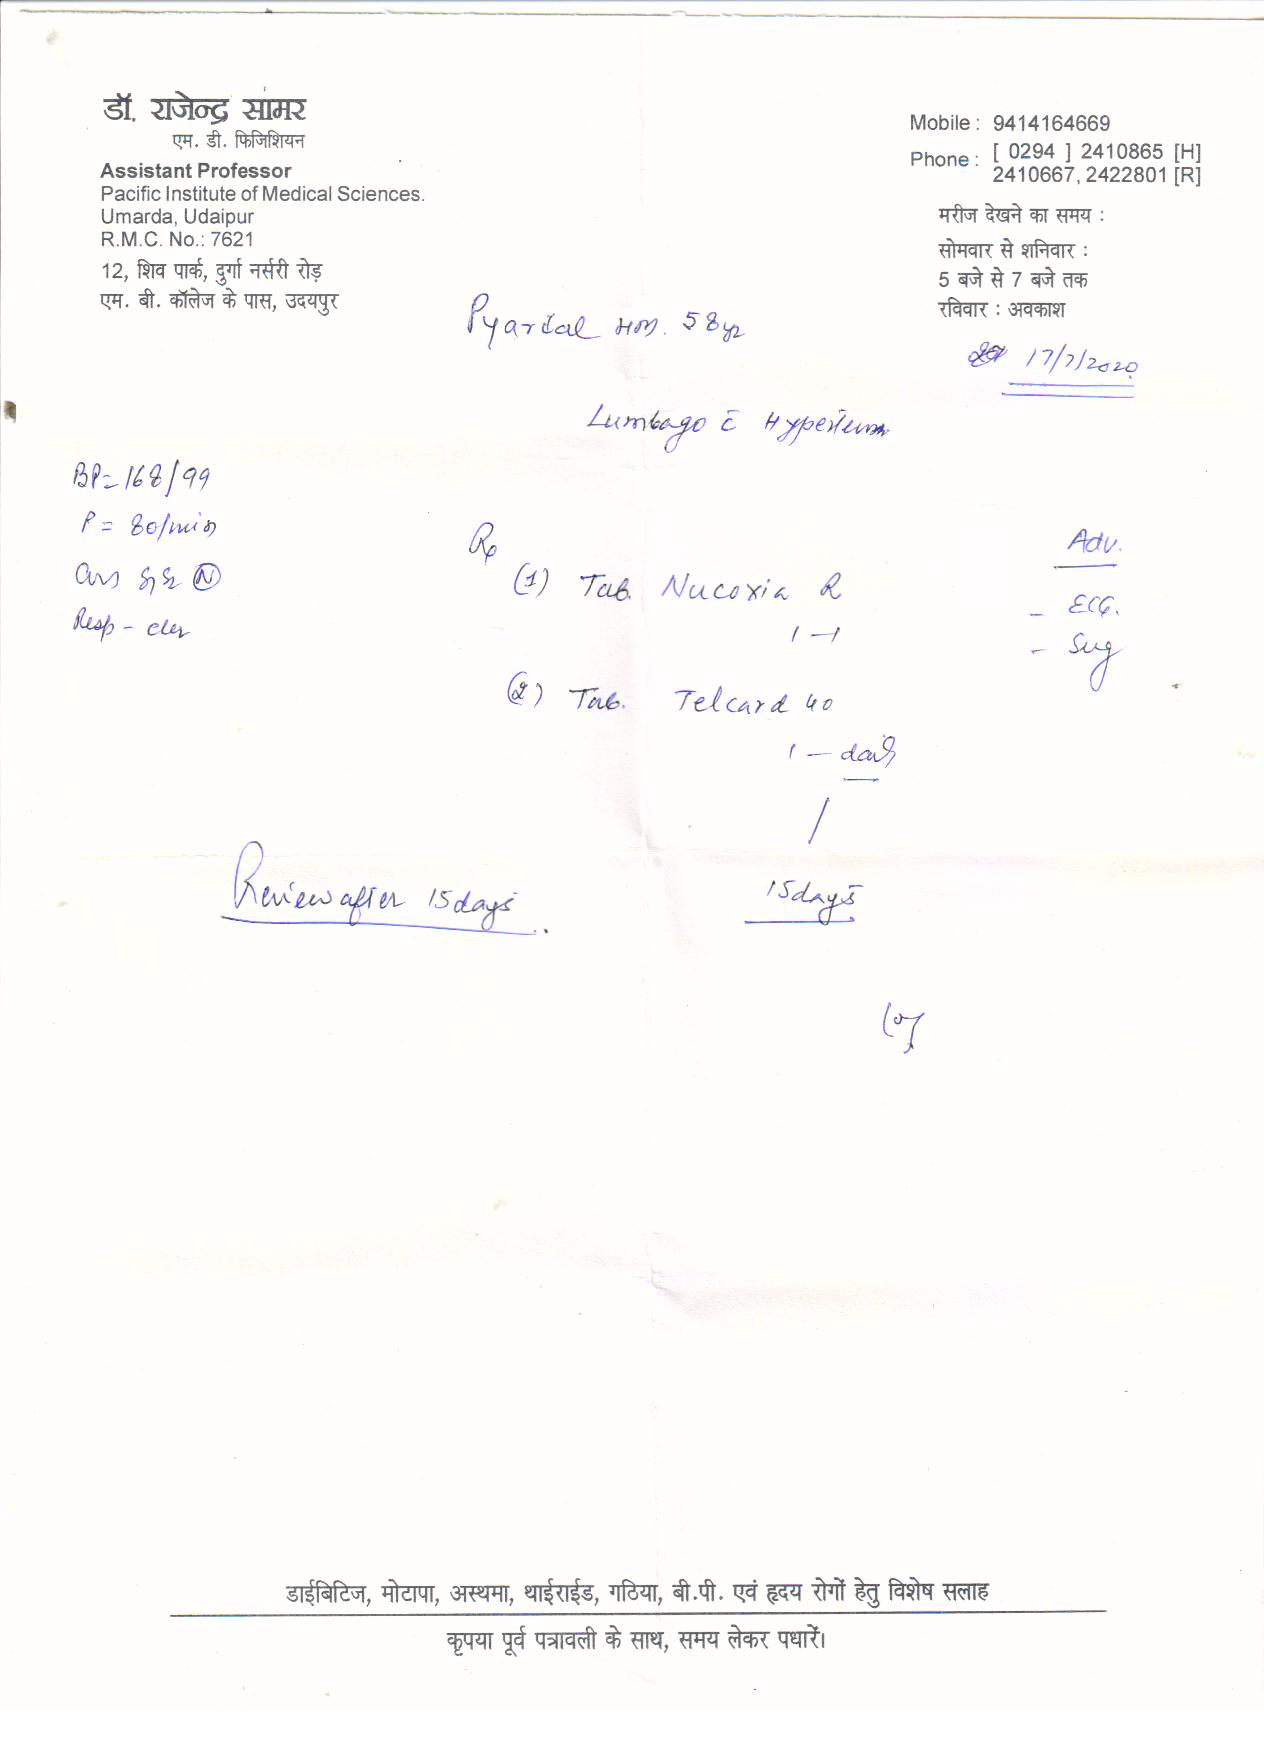 डॉ. राजेन्द्र सामर
एम. डी. फिजिशियन
Assistant Professor
Pacific Institute of Medical Sciences.
Umarda, Udaipur
R.M.C. No.: 7621
12, शिव पार्क, दुर्गा नर्सरी रोड़
एम. बी. कॉलेज के पास, उदयपुर
Mobile : 9414164669
Phone : [ 0294 ] 2410865 [H]
2410667, 2422801 [R]
मरीज देखने का समय :
सोमवार से शनिवार :
5 बजे से 7 बजे तक
रविवार : अवकाश
17/7/2020
58yr
Lumbago c̄
BP=168/99
P = 80/min
S1 S2 (N)
Resp -
Rx
(1) Tab. Nucoxia R
1 - 1
(2) Tab. Telcard 40
1 - daily
15days
Adv.
- ECG.
- Sug
Review after 15days.
डाईबिटिज, मोटापा, अस्थमा, थाईराईड, गठिया, बी.पी. एवं हृदय रोगों हेतु विशेष सलाह
कृपया पूर्व पत्रावली के साथ, समय लेकर पधारें।